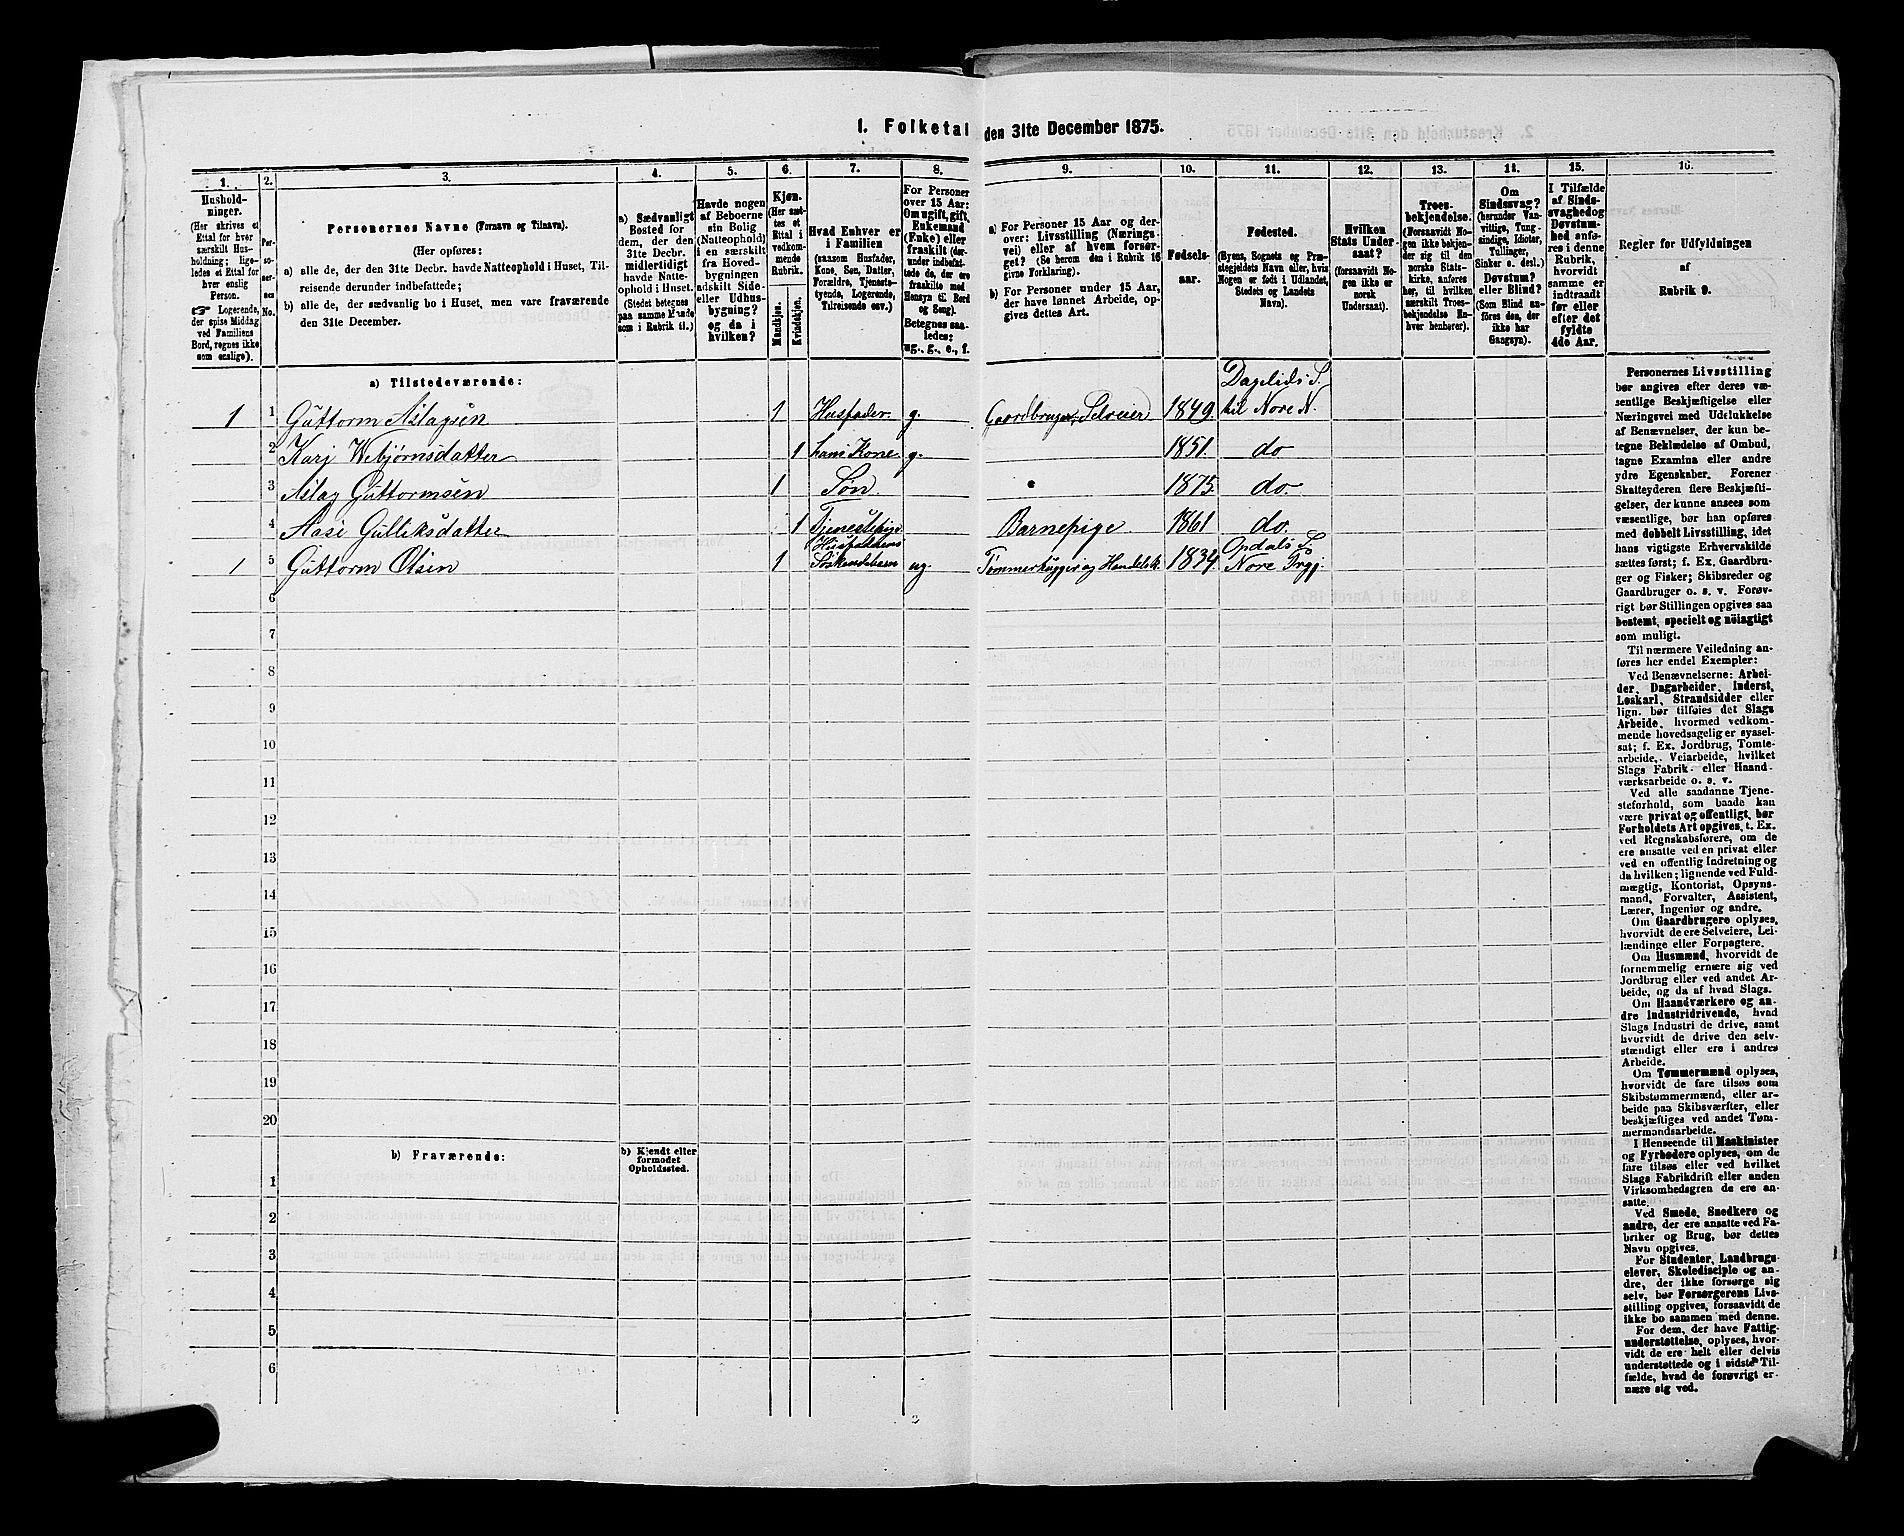 1. Folketal den 31te December 1875.
1. 2. 3. 4. 5. 6. 7. 8. 9. 10. 11. 12. 13. 14. 15. 16.
Hushold-
ninger.
(Her skrives et
Ettal for hver
særskilt Hus-
holdning; lige-
ledes et Ettal for
hver enslig
Person.
☞ Logerende,
der spise Middag
ved Familiens
Bord, regnes ikke
som enslige).
Personernes Navne (Fornavn og Tilnavn).
(Her opføres:
a) alle de, der den 31te Decbr. havde Natteophold i Huset, Til-
reisende derunder indbefattede;
b) alle de, der sædvanlig bo i Huset, men vare fraværende
den 31te December.
a) Sædvanligt
Bosted for
dem, der den
31te Decbr.
midlertidigt
havde Natte-
ophold i Huset.
(Stedet betegnes
paa samme Maade
som i Rubrik 11.)
Havde nogen
af Beboerne
sin Bolig
(Natteophold)
i en særskilt
fra Hoved-
bygningen
adskilt Side-
eller Udhus-
bygning?
og da i
hvilken?
Kjøn.
(Her sæt-
tes et
Ettal i
vedkom-
mende
Rubrik.
Mandkjøn.
Kvindekjøn.
Hvad Enhver er
i Familien
(saasom Husfader,
Kone, Søn, Datter,
Forældre, Tjeneste-
tyende, Logerende,
Tilreisende osv.)
For Personer
over 15 Aar:
Om ugift, gift,
Enkemand
(Enke) eller
fraskilt (der-
under indbefat-
tede de, der ere
fraskilte med
Hensyn til Bord
og Seng).
Betegnes saa-
ledes:
ug., g., e., f.
a) For Personer 15 Aar og der-
over: Livsstilling (Nærings-
vei) eller af hvem forsør-
get? (Se herom den i Rubrik 16
givne Forklaring).
b) For Personer under 15 Aar,
der have lønnet Arbeide, op-
gives dettes Art.
Fødsels-
aar.
Fødested.
(Byens, Sognets og Præ-
stegjeldets Navn eller, hvis
Nogen er født i Udlandet,
Stedets og Landets
Navn).
Hvilken
Stats Under-
saat?
(forsaavidt No-
gen ikke er
norsk
Undersaat).
Troes-
bekjendelse.
(Forsaavidt No-
gen ikke bekjen-
der sig til den
norske Stats-
kirke, anføres
her, til hvilken
særskilt Troes-
bekjendelse En-
hver henhører).
Om
Sindssvag?
(herunder Van-
vittige, Tung-
sindige, Idioter,
Tullinger,
Sinker o. desl.).
Døvstum?
eller Blind?
(Som Blind an-
føres den, der
ikke har
Gangsyn).
I Tilfælde
af Sinds-
svaghed og
Døvstum-
hed anfø-
res i denne
Rubrik,
hvorvidt
samme er
indtraadt
før eller
efter det
fyldte
4de Aar.
Regler for Udfyldningen
af
Rubrik 9.
a) Tilstedeværende:
1 1 Guttorm Aslagsen 1 Husfader g. Gaardbruger, Selveier 1849. Dagalids S. til Nore N.
2 Karj Webjørnsdatter 1 hans Kone g. 1851. do
3 Aslag Guttormsen 1 Søn. 1875. do.
4 Aase Gulliksdatter 1 Tjenestepige Barnepige 1861 do.
1 5 Guttorm Olsen 1 Husfaderens Søskendebarn ug. Tømmerhugger og Handelsk. 1834. Opdals S. Nore Prgj.
6
7
8
9
10
11
12
13
14
15
16
17
18
19
20
b) Fraværende:
b) Kjendt eller
formodet
Opholdssted.
1
2
3
4
5
6
Personernes Livsstilling
bør angives efter deres væ-
sentlige Beskjæftigelse eller
Næringsvei med Udelukkelse
af Benævnelser, der kun be-
tegne Beklædelse af Ombud,
tagne Examina eller andre
ydre Egenskaber. Forener
Skatteyderen flere Beskjæfti-
gelser, der kunne ansees som
væsentlige, bør han opføres
med dobbelt Livsstilling, idet
hans vigtigste Erhvervskilde
sættes først; f. Ex. Gaardbru-
ger og Fisker; Skibsreder og
Gaardbruger o. s. v. Forøv-
rigt bør Stillingen opgives saa
bestemt, specielt og nøiagtigt
som muligt.
Til nærmere Veiledning an-
føres her endel Exempler:
Ved Benævnelserne: Arbei-
der, Dagarbeider, Inderst,
Løskarl, Strandsidder eller
lign. bør tilføies det Slags
Arbeide, hvormed vedkom-
mende hovedsagelig er syssel-
sat; f. Ex. Jordbrug, Tomte-
arbeide, Veiarbeide, hvilket
Slags Fabrik- eller Haand-
værksarbeide o. s. v.
Ved alle saadanne Tjene-
steforhold, som baade kan
være privat og offentligt, bør
Forholdets Art opgives, t. Ex.
ved Regnskabsførere, om de
ere ansatte ved en privat eller
ved en offentlig Indretning og
da hvilken; lignende ved Fuld-
mægtig, Kontorist, Opsyns-
mand, Forvalter, Assistent,
Lærer, Ingeniør og andre.
Om Gaardbrugere oplyses,
hvorvidt de ere Selveiere, Lei-
lændinge eller Forpagtere.
Om Husmænd, hvorvidt de
fornemmelig ernære sig ved
Jordbrug eller ved andet Ar-
beide, og da af hvad Slags.
Om Haandværkere og an-
dre Industridrivende, hvad
Slags Industri de drive, samt
hvorvidt de drive den selv-
stændigt eller ere i andres
Arbeide.
Om Tømmermænd oplyses,
hvorvidt de fare tilsøs som
Skibstømmermænd, eller ar-
beide paa Skibsværfter, eller
beskjæftiges ved andet Tøm-
mermandsarbeide.
I Henseende til Maskinister
og Fyrbødere oplyses, om de
fare tilsøs eller ved hvilket
Slags Fabrikdrift eller anden
Virksomhedsgren de ere an-
satte.
Ved Smede, Snedkere og
andre, der ere ansatte ved Fa-
briker og Brug, bør dettes
Navn opgives.
For Studenter, Landbrugs-
elever, Skoledisciple og an-
dre, der ikke forsørge sig
selv, bør Forsørgerens Livs-
stilling opgives, forsaavidt de
ikke bo sammen med denne.
For dem, der have Fattig-
understøttelse, oplyses, hvor-
vidt de ere helt eller delvis
understøttede og i sidste Til-
fælde, hvad de forøvrigt er-
nære sig ved.